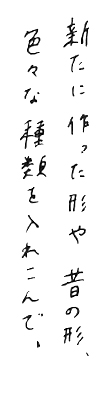 新たに作った形や昔の形、
色々な種類を入れこんで、